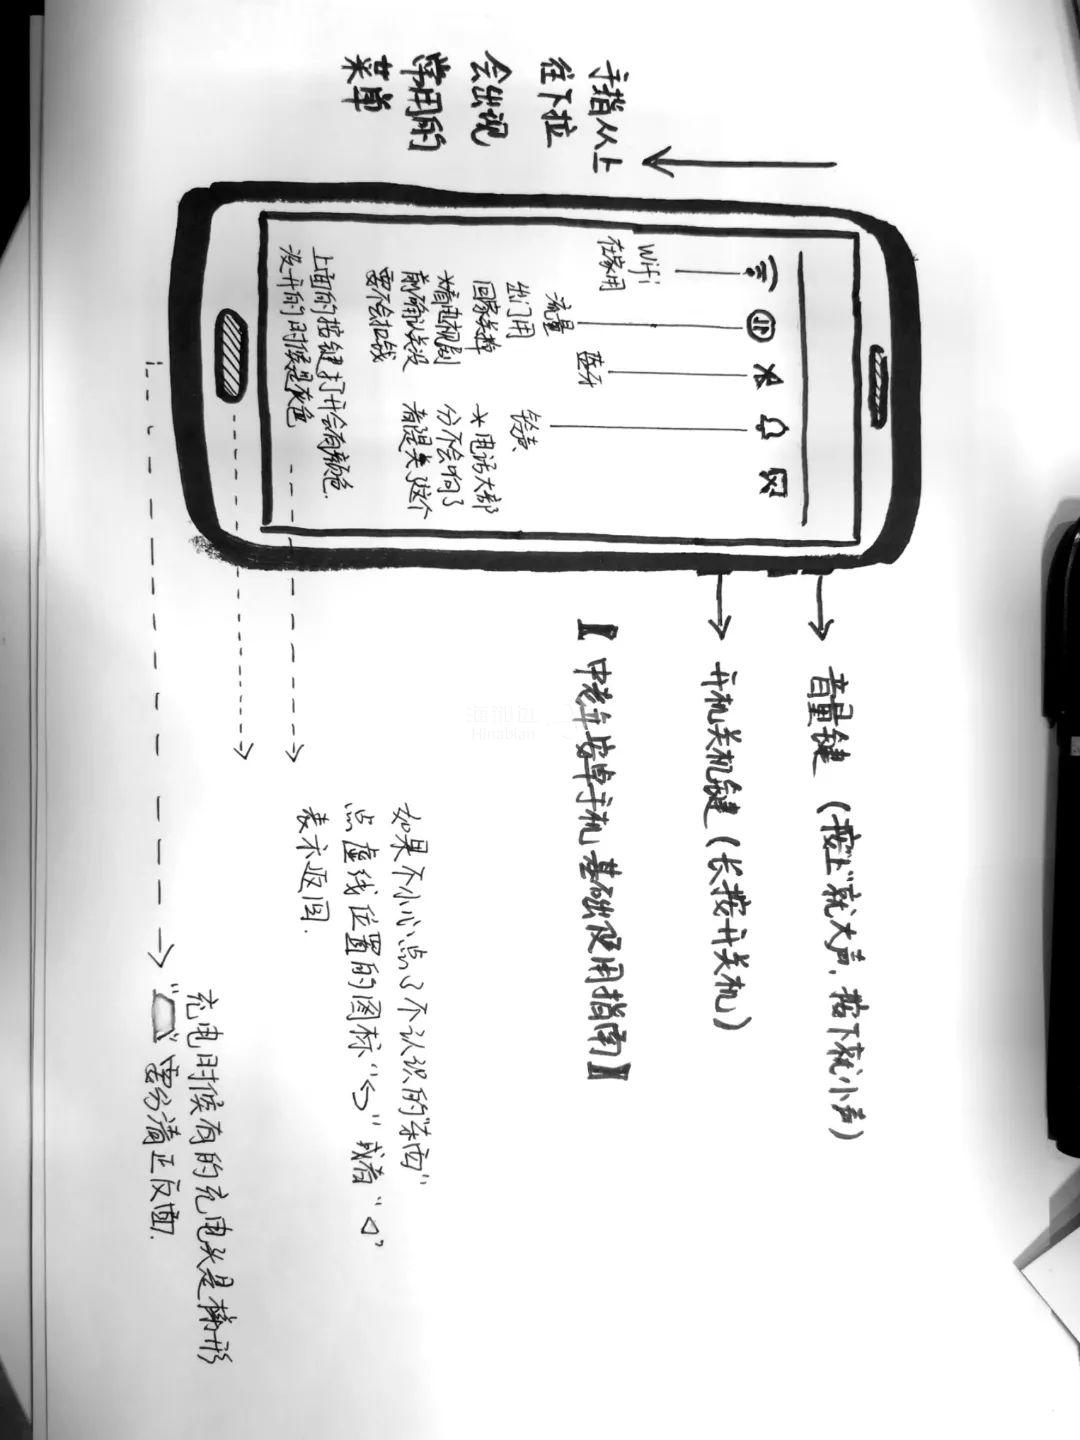 手指从上
往下拉
会出现
常用的
菜单
Wifi
在家用
流量
出门用
回家关掉
*看电视剧
前确认关没
要不会扣钱
蓝牙
铃声
*电话大部
分不会响了
看是关了这个
上面的按键打开会有颜色.
没开的时候是灰色
音量键（按"上"就大声，按下就小声）
开机关机键（长按开关机）
【中老年安卓手机基础使用指南】
如果不小心点了不认识的"东西"
点虚线位置的图标"" 或者 "◁"
表示返回.
充电时候有的充电头是梯形
"" 要分清正反面.
海那边
Hinabian